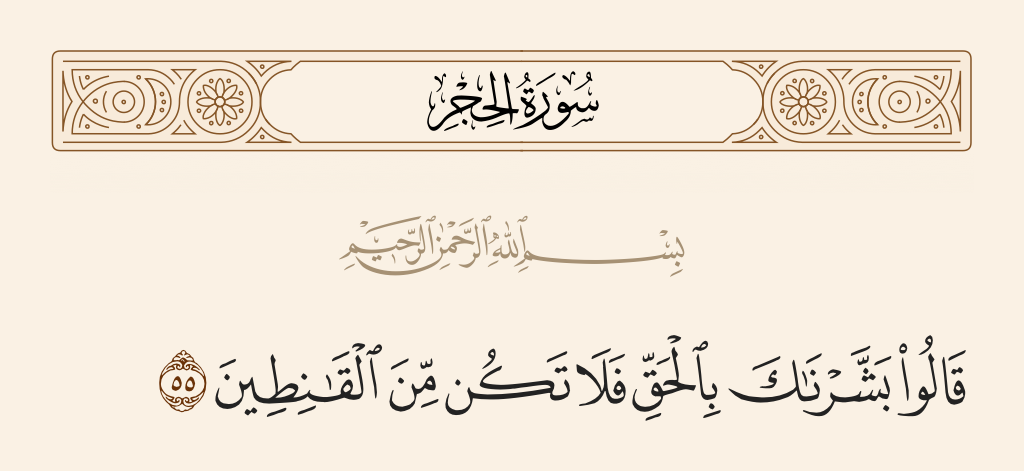 سُورَةُ الْحِجْرِ
بِسْمِ ٱللَّهِ ٱلرَّحْمَٰنِ ٱلرَّحِيمِ
قَالُوا۟ بَشَّرْنَـٰكَ بِٱلْحَقِّ فَلَا تَكُن مِّنَ ٱلْقَـٰنِطِينَ ٥٥